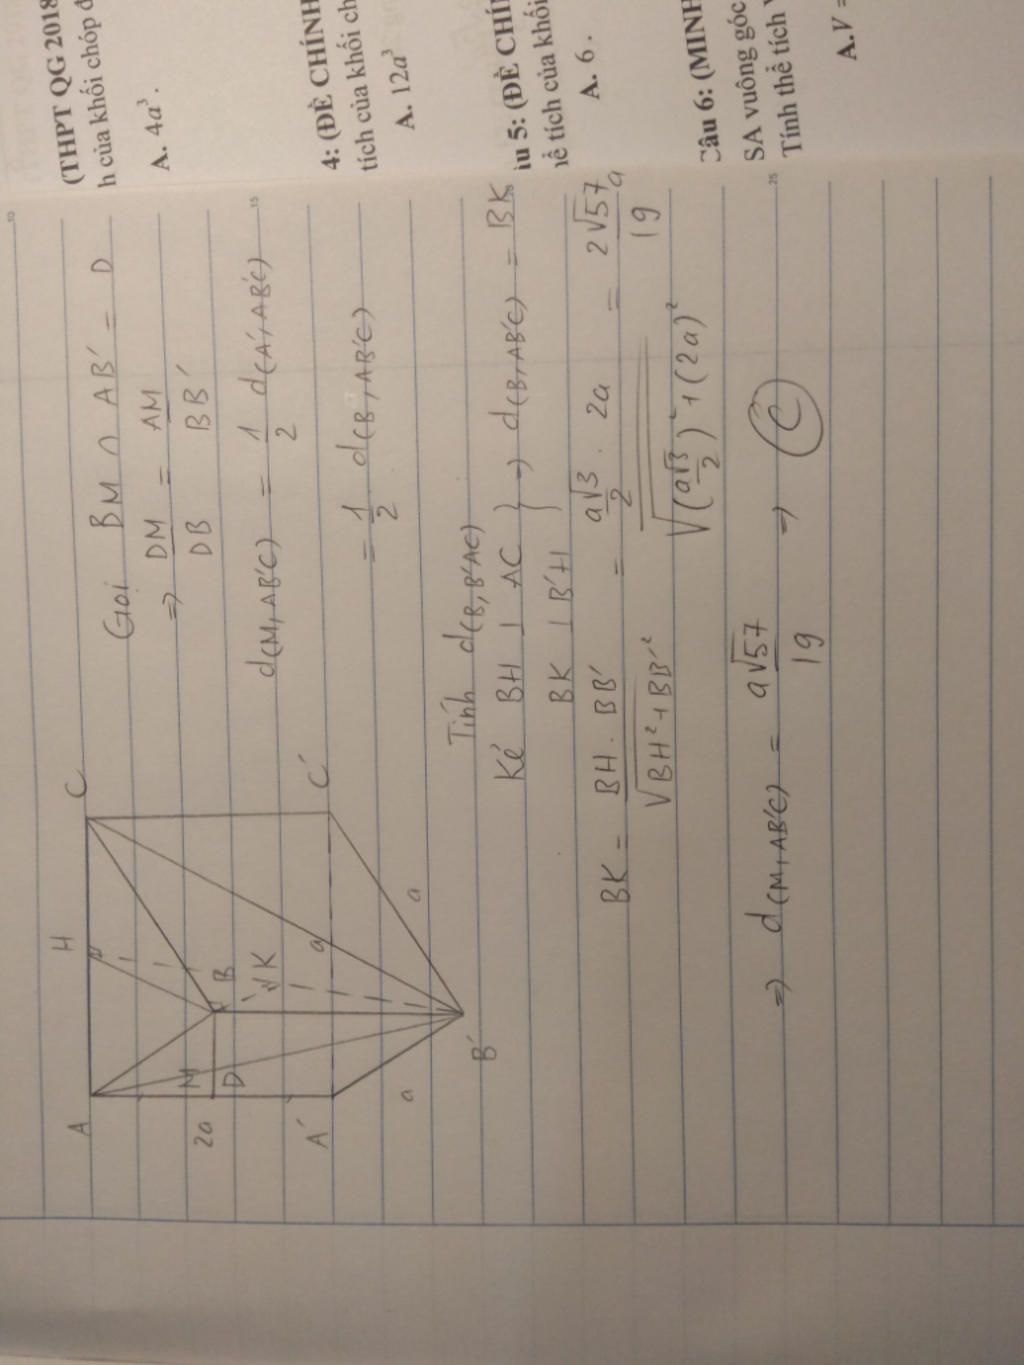 (THPT QG 2018
h của khối chóp đ
A. 4a³.
4: (ĐỀ CHÍNH
tích của khối ch
A. 12a³
u 5: (ĐỀ CHÍ
ể tích của khối
A. 6.
Câu 6: (MINH
SA vuông góc
Tính thể tích
A.V =
10
15
25
A
H
C
M
D
B
K
2a
A'
a
C'
a
a
B'
Gọi BM ∩ AB' = D
=> DM/DB = AM/BB'
d(M, AB'C) = 1/2 d(A', AB'C)
= 1/2 . d(B, AB'C)
Tính d(B, B'AC)
Kẻ BH ⊥ AC
BK ⊥ B'H } => d(B, AB'C) = BK
BK = BH . BB' / √(BH² + BB'²) = (a√3/2 . 2a) / √((a√3/2)² + (2a)²) = 2√57a/19
=> d(M, AB'C) = a√57/19 => C